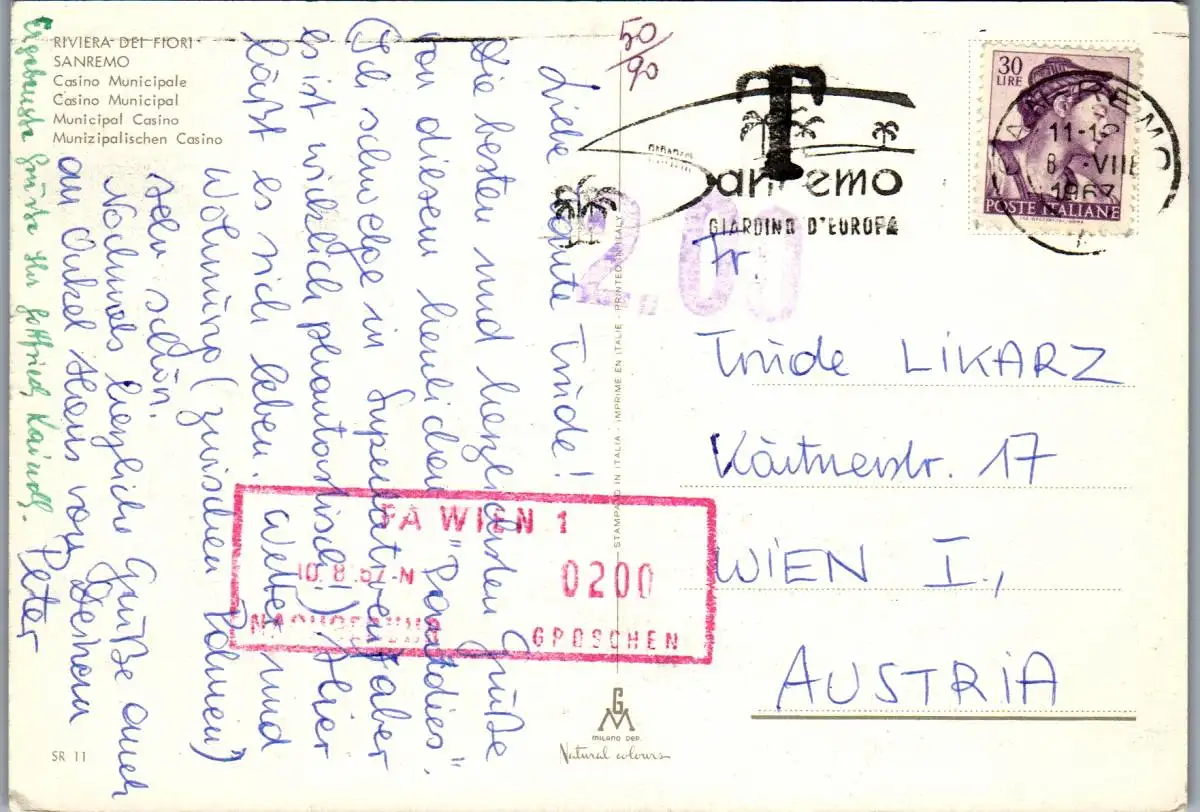 RIVIERA DEI FIORI
SANREMO
Casino Municipale
Casino Municipal
Municipal Casino
Munizipalischen Casino
Liebe Tante Trude!
Die besten und herzlichsten Grüße
von diesem herrlichen "Paradies".
(Ich schwelge in Superlativen, aber
es ist wirklich phantastisch!) Hier
läßt es sich leben. Wetter und
Wohnung (zwischen Palmen)
sehr schön.
Nochmals herzliche Grüße auch
an Onkel Hans von Deinem
Peter
Ergebenste Grüße Ihr Gottfried Kaindl.
50/90
T
Sanremo
GIARDINO D'EUROPA
2.00
30
LIRE
POSTE ITALIANE
SANREMO
11-12
8.-VIII
1967
Fr.
Trude LIKARZ
Kärtnerstr. 17
WIEN I.,
AUSTRIA
STAMPATO IN ITALIA - IMPRIME EN ITALIE - PRINTED IN ITALY
FA WIEN 1
10.8.67-N
0200
NACHGEBÜHR
GROSCHEN
GM
MILANO DEP.
Natural colours
SR 11